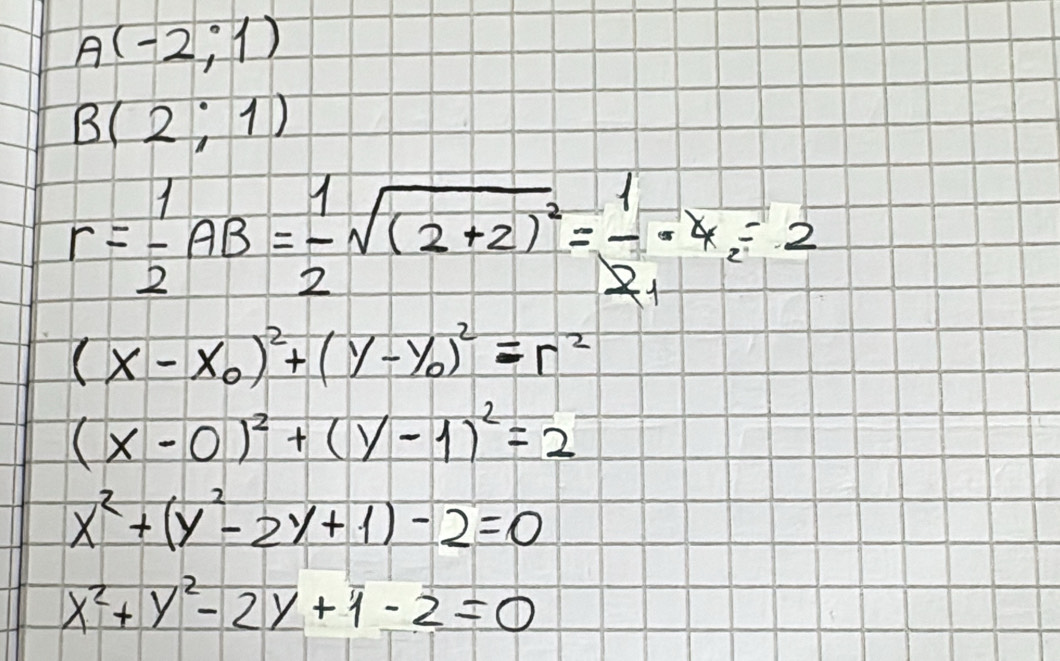 A(-2;1)
B(2;1)
r = 1/2 AB = 1/2 √(2+2)² = 1/2̸₁ · 4̸₂ = 2
(x - x₀)² + (y - y₀)² = r²
(x - 0)² + (y - 1)² = 2
x² + (y² - 2y + 1) - 2 = 0
x² + y² - 2y + 1 - 2 = 0